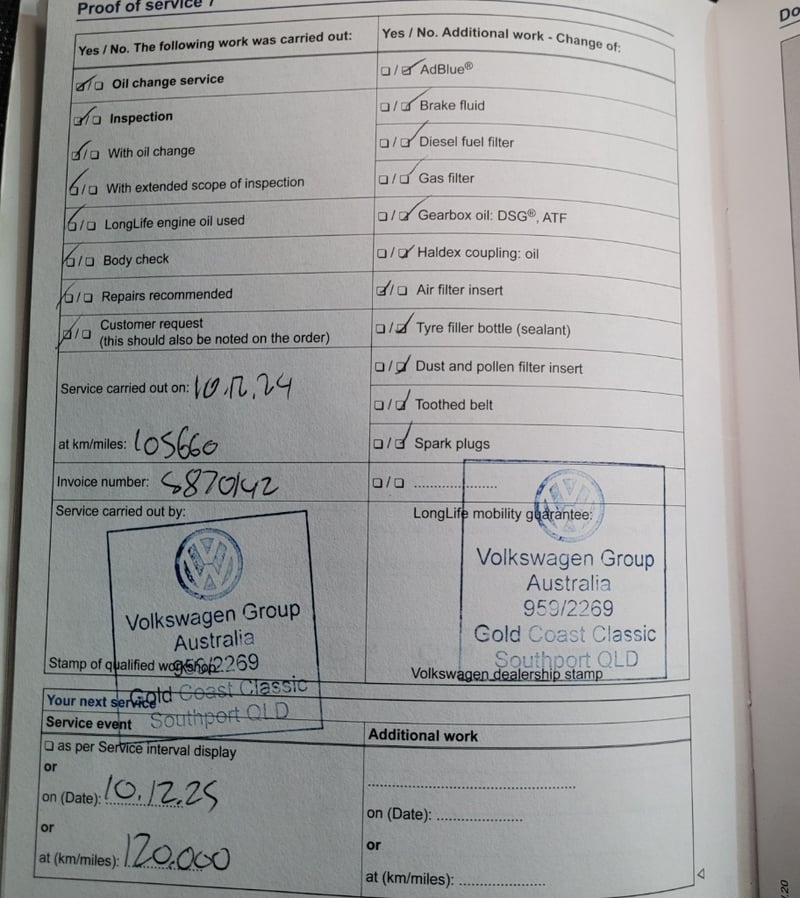 Proof of service
Yes / No. The following work was carried out:
☑/☐ Oil change service
☑/☐ Inspection
☑/☐ With oil change
☑/☐ With extended scope of inspection
☑/☐ LongLife engine oil used
☑/☐ Body check
☑/☐ Repairs recommended
☑/☐ Customer request
(this should also be noted on the order)
Service carried out on: 10.12.24
at km/miles: 105660
Invoice number: 5870142
Service carried out by:
Volkswagen Group
Australia
959/2269
Gold Coast Classic
Southport QLD
Stamp of qualified workshop
Yes / No. Additional work - Change of:
☐/☑ AdBlue®
☐/☑ Brake fluid
☐/☑ Diesel fuel filter
☐/☑ Gas filter
☐/☑ Gearbox oil: DSG®, ATF
☐/☑ Haldex coupling: oil
☑/☐ Air filter insert
☐/☑ Tyre filler bottle (sealant)
☐/☑ Dust and pollen filter insert
☐/☑ Toothed belt
☐/☑ Spark plugs
☐/☐ ....................
LongLife mobility guarantee:
Volkswagen Group
Australia
959/2269
Gold Coast Classic
Southport QLD
Volkswagen dealership stamp
Your next service
Service event
☐ as per Service interval display
or
on (Date): 10.12.25
or
at (km/miles): 120.000
Additional work
..................................................
on (Date): ....................
or
at (km/miles): ....................
Do